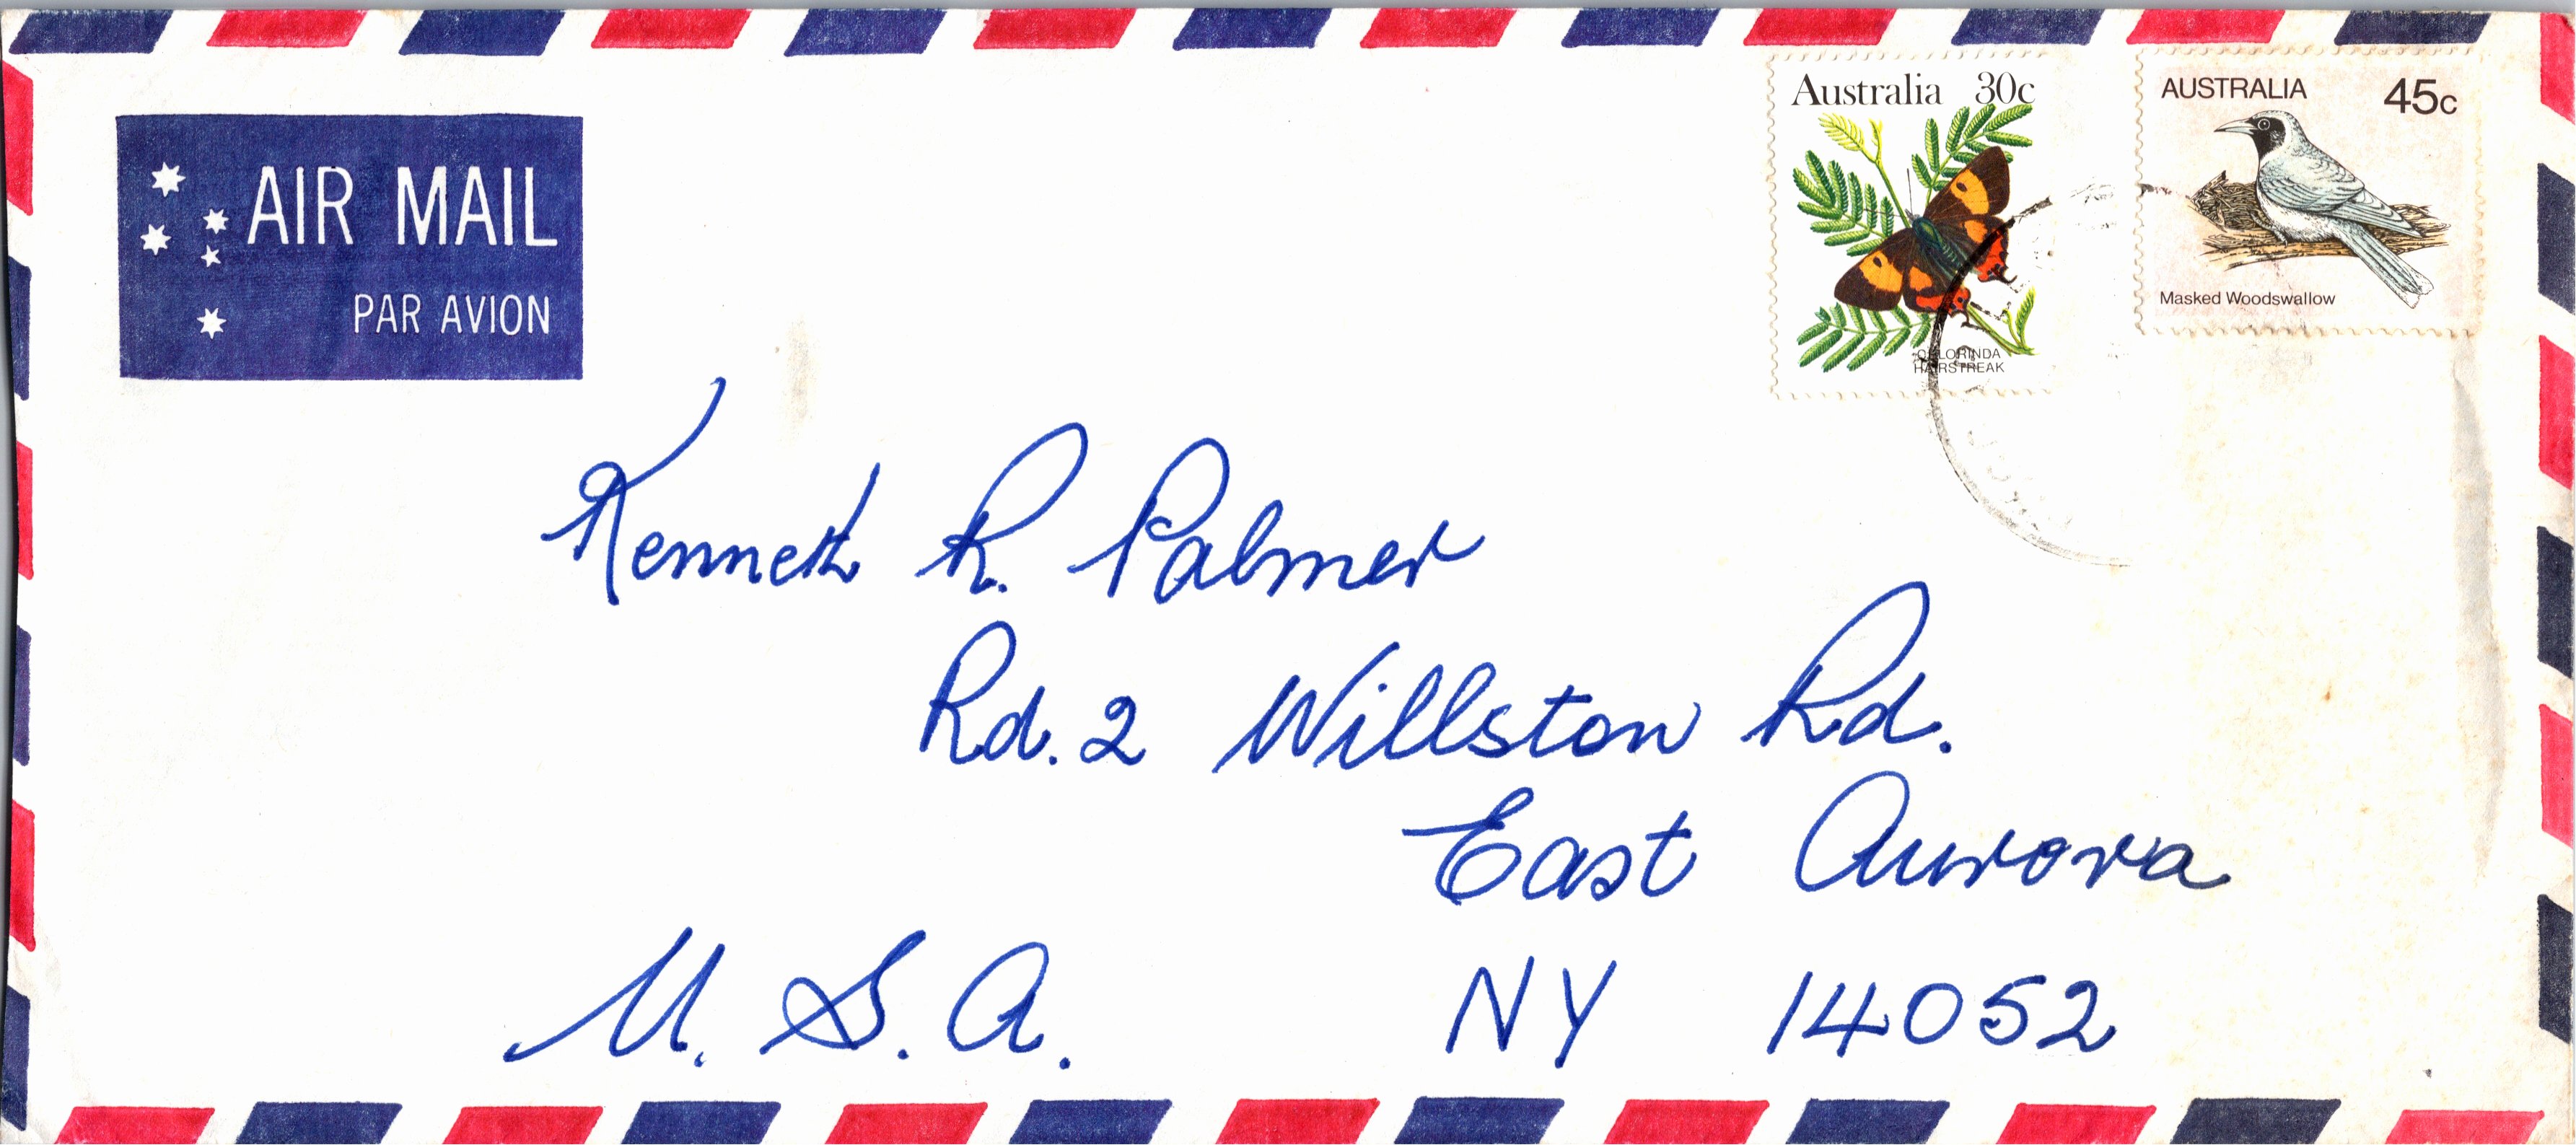 AIR MAIL
PAR AVION
Australia 30c
CHLORINDA
HAIRSTREAK
AUSTRALIA 45c
Masked Woodswallow
Kenneth R. Palmer
Rd. 2 Willston Rd.
East Aurora
U.S.A. NY 14052